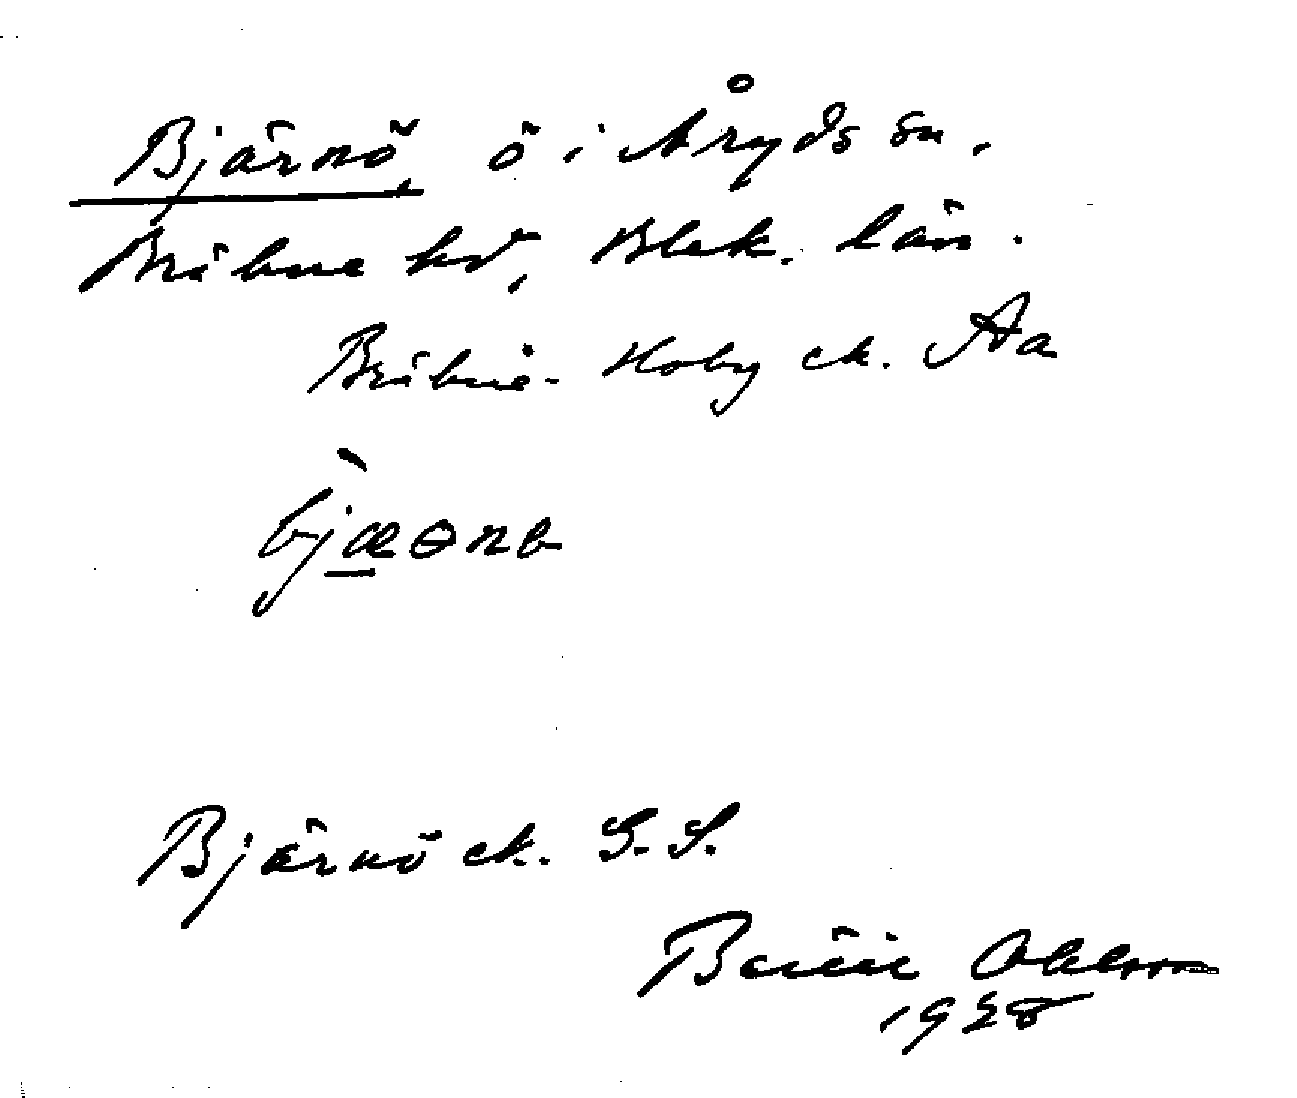 Bjärnö, ö i Åryds sn.
Bräkne hd, Blek. län.
Bräkne-Hoby ek. Aa
bjæɵnɵ
Bjärnö ek. G. S.
Ohlsson
1928